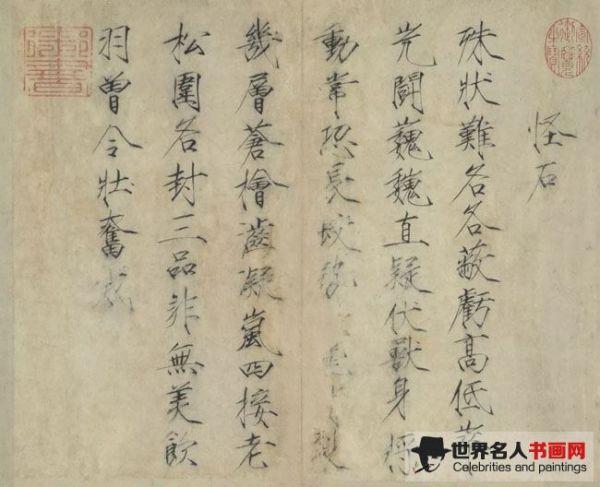 怪石
殊狀難名各蔽虧高低
鬥巍巍直疑伏獸身將
動常恐長蛟
幾層蒼檜凝嵐四接老
松圍各封三品非無美飲
羽曾令壯奮威
世界名人书画网
Celebrities and paintings